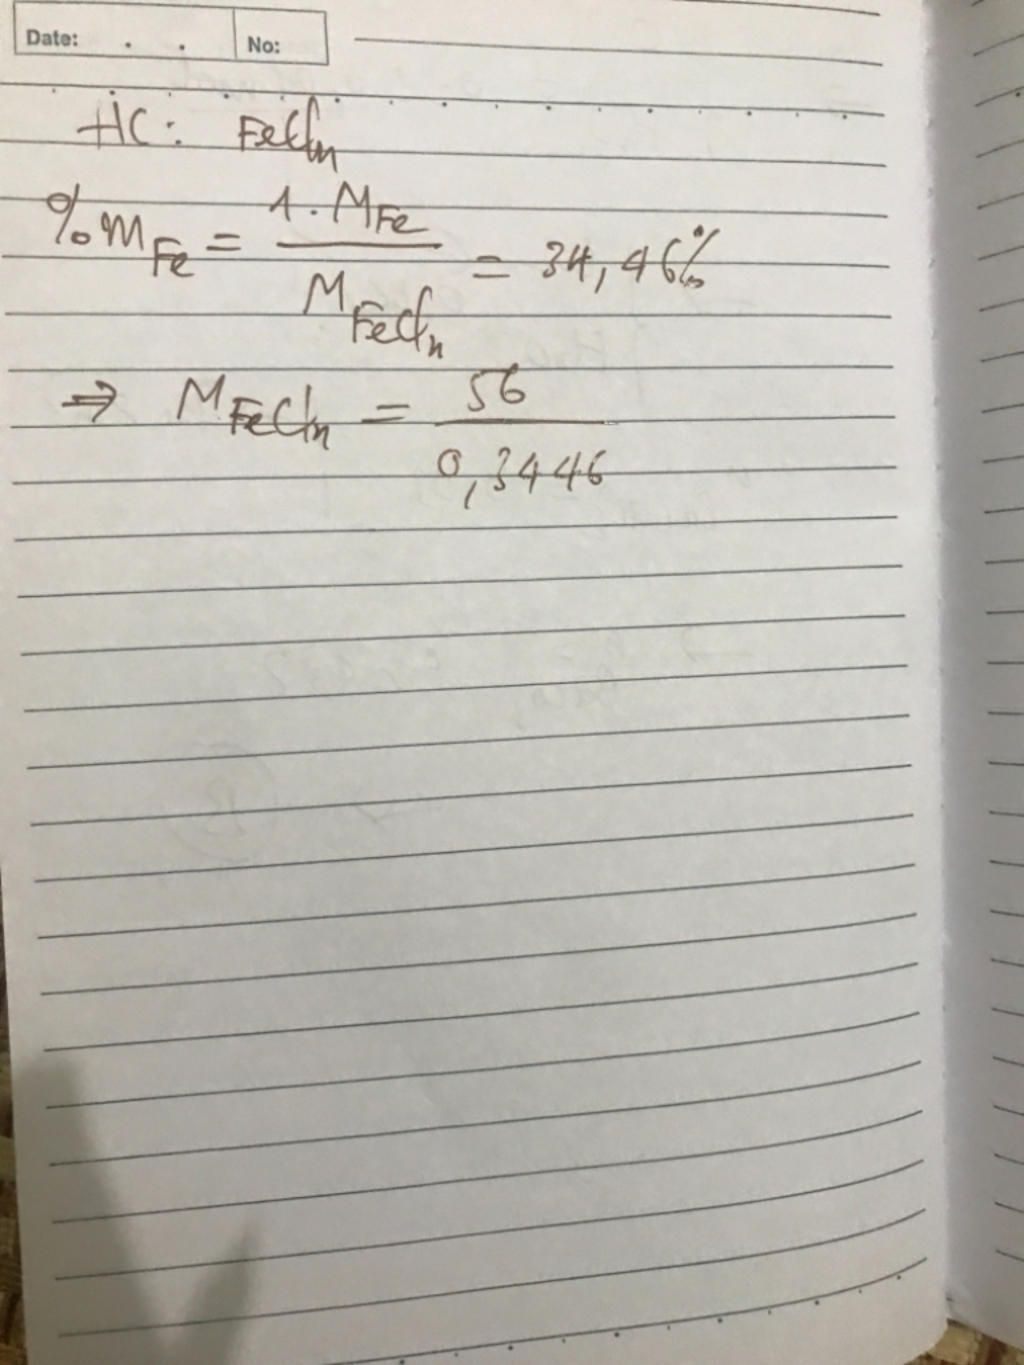 Date: . . No:
HC: FeCln
%mFe = 1. MFe / MFeCln = 34,46%
⇒ MFeCln = 56 / 0,3446